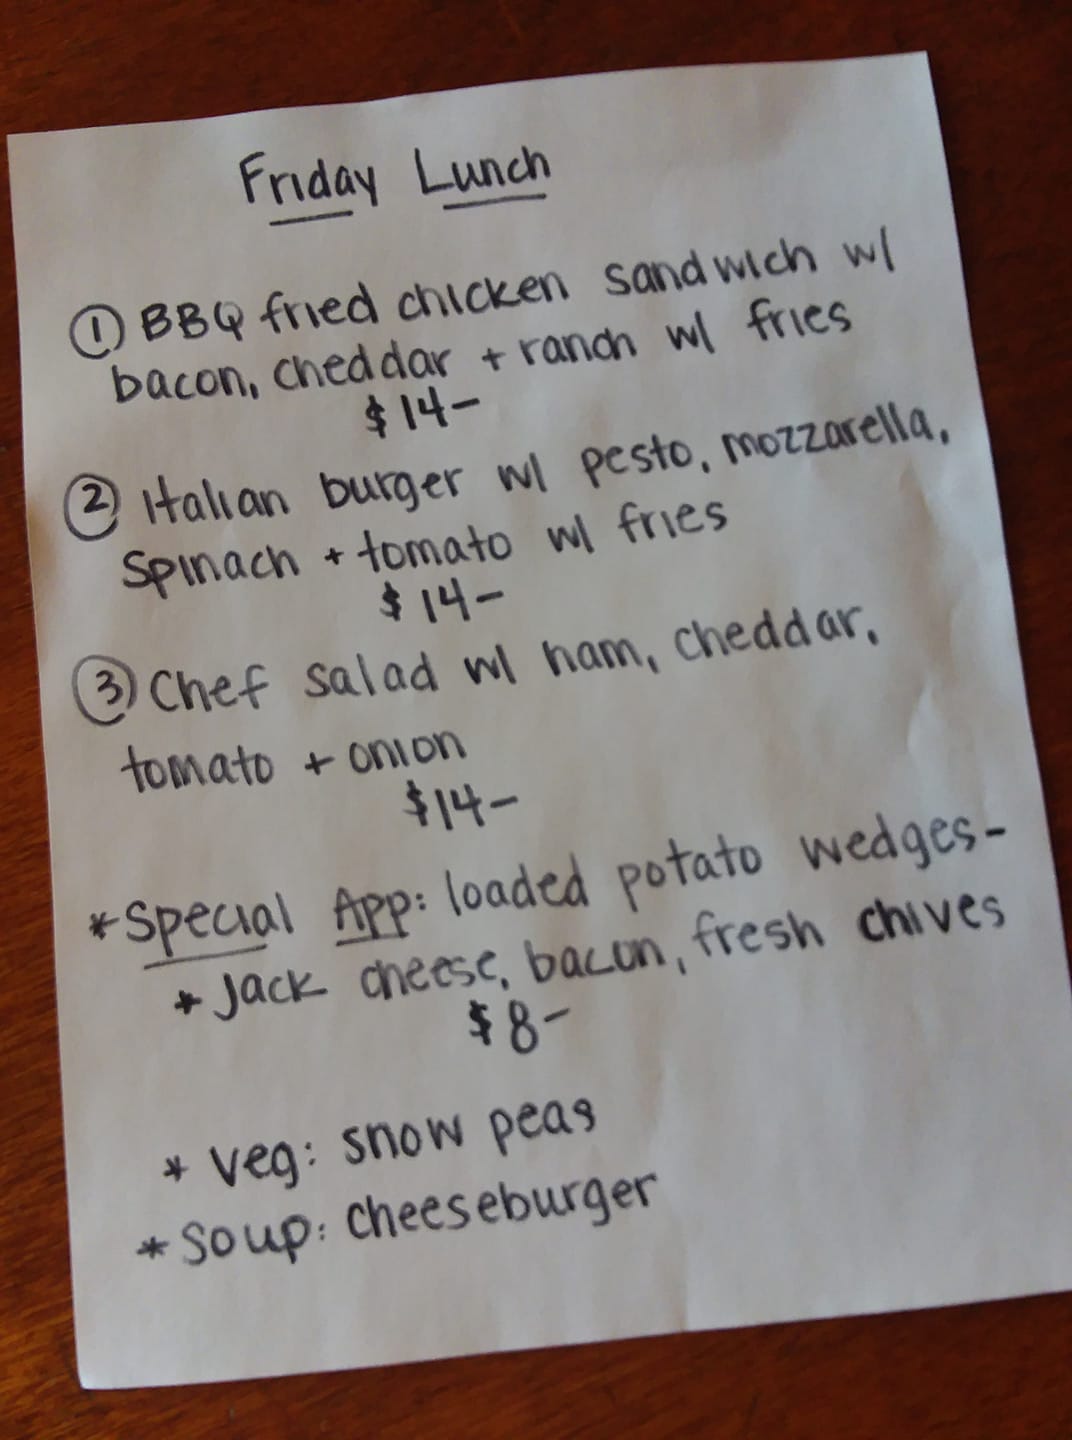 Friday Lunch
① BBQ fried chicken sandwich w/
bacon, cheddar + ranch w/ fries
$14-
② Italian burger w/ pesto, mozzarella,
Spinach + tomato w/ fries
$14-
③ Chef salad w/ ham, cheddar,
tomato + onion
$14-
*Special App: loaded potato wedges-
* Jack cheese, bacon, fresh chives
$8-
* Veg: snow peas
* Soup: cheeseburger